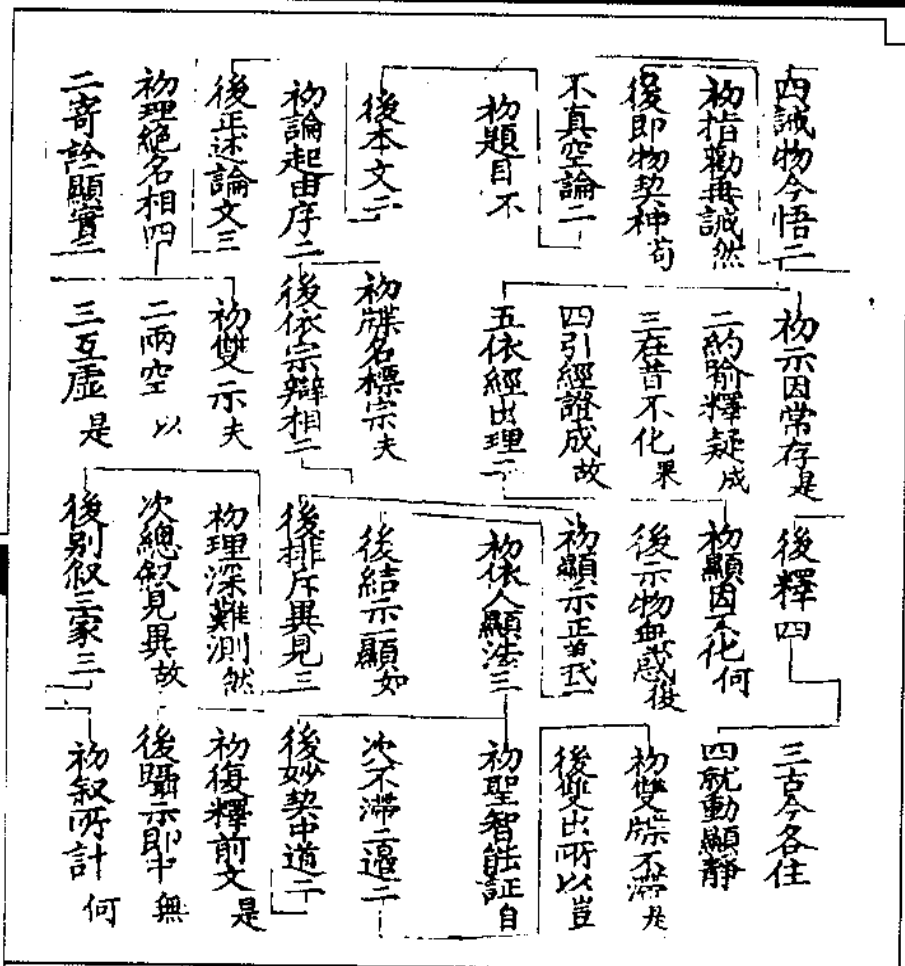 四誡物令悟二
初指勸再誡然
後即物契神苟
不真空論二
初題目不
後本文二
初論起由序二
後正述論文三
初理絕名相四
二寄詮顯實二
初示因常存是
二約喻釋疑成
三在昔不化果
四引經證成故
五依經出理二
初牒名標宗夫
後依宗辯相二
初雙示夫
二兩空以
三互虛是
後釋四
初顯因不化何
後示物無惑復
初顯示正義二
初依人顯法三
後結示一顯如
後排斥異見三
初理深難測然
次總敘見異故
後別敘三家三
三古今各住
四就動顯靜
初雙牒不滯是
後雙出所以豈
初聖智能証自
次不滯二邊二
後妙契中道二
初復釋前文是
後躡示即中無
初敘所計何